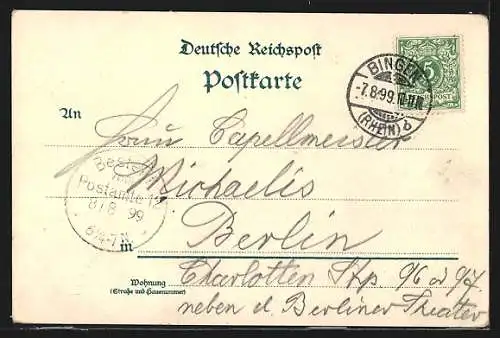 Deutsche Reichspost
Postkarte
BINGEN
-7.8.99.
(RHEIN) b
5
REICHSPOST
An
Herrn Capellmeister
Michaelis
Bestellt
vom
Postamte
8/8 99
in
Berlin
Wohnung
(Straße und Hausnummer)
Charlotten Str 96 od 97
neben d. Berliner Theater